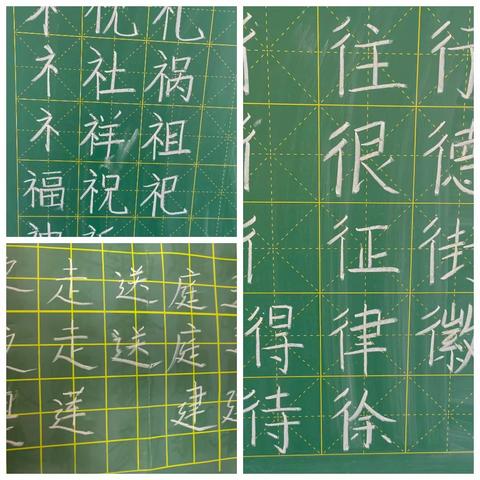 礻 祝 礼
礻 社 祸
礻 祥 祖
福 祝 祀
走 送 庭
走 送 庭
莲 建
往 行
很 德
征 街
得 律 徽
待 徐